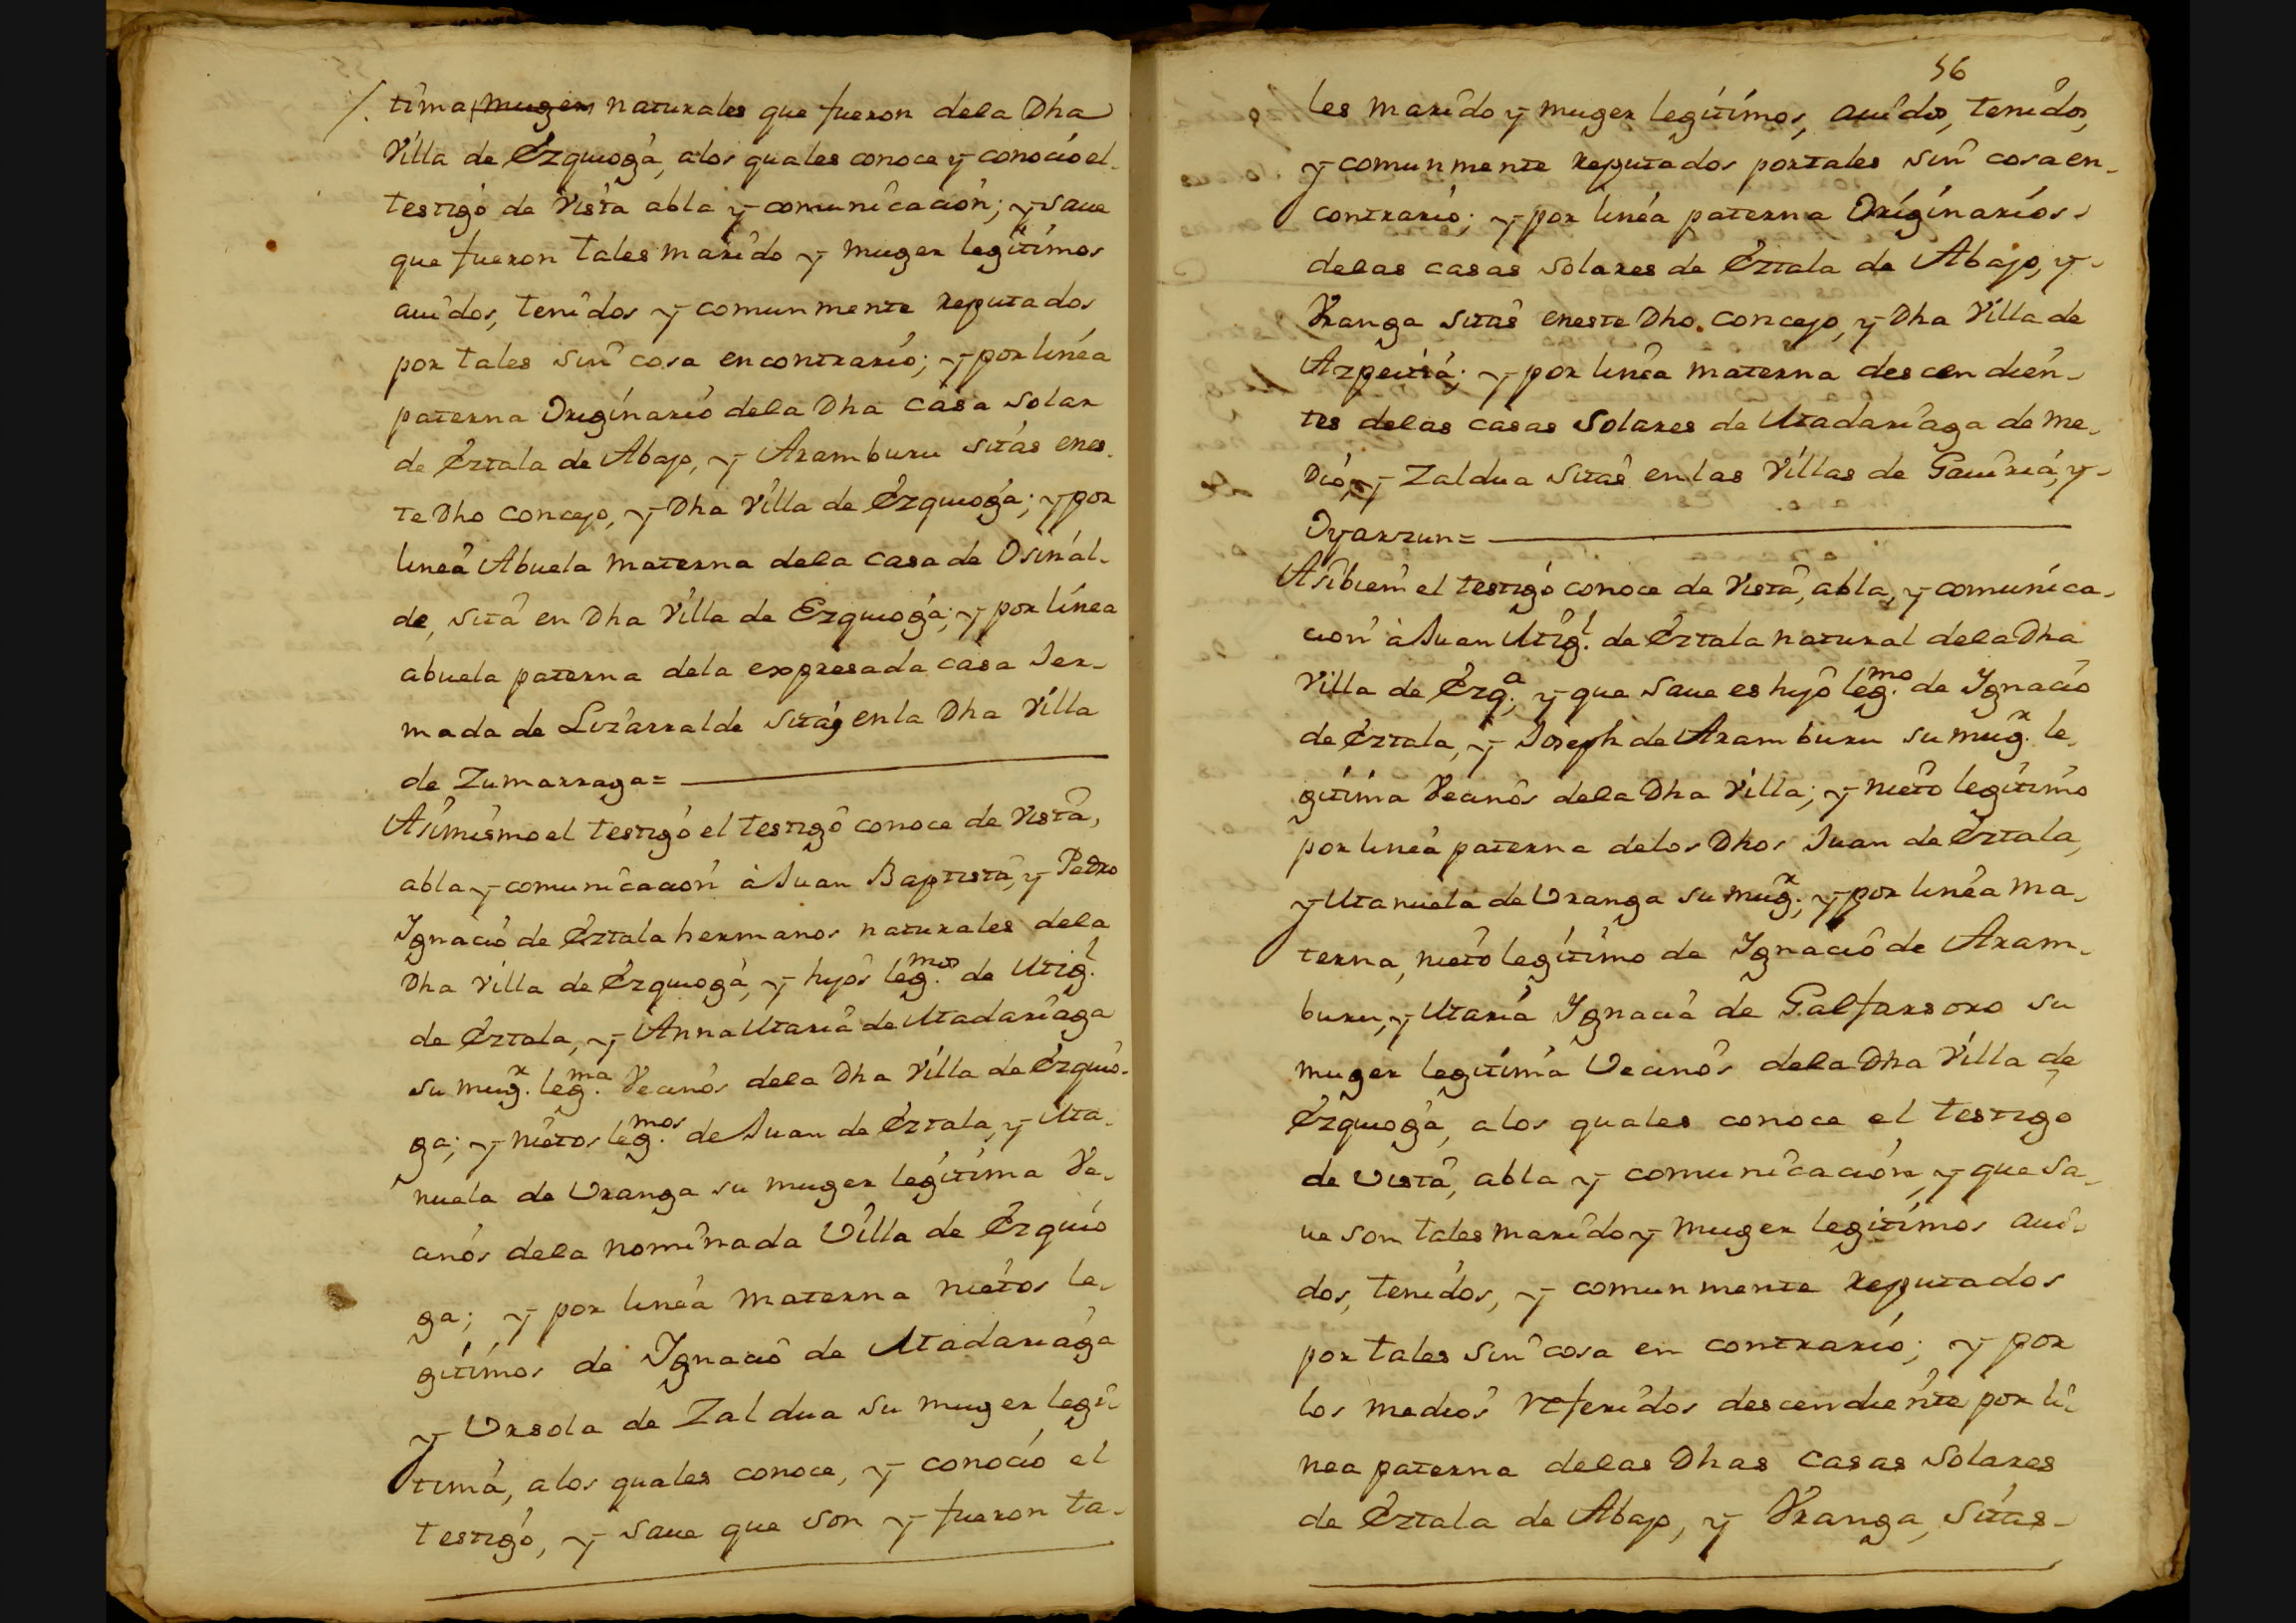 tima, muger naturales que fueron dela Dha
Villa de Ezquioga, alos quales conoce y conocio el
testigo de Vista abla y comunicacion; y save
que fueron tales marido y muger legitimos
avidos, tenidos y comunmente reputados
por tales sin cosa en contrario; y por linea
paterna Originario dela Dha casa solar
de Eztala de Abajo, y Aramburu sitas enes-
te Dho concejo, y Dha Villa de Ezquioga; y por
linea Abuela materna dela casa de Osinal-
de, sita en Dha Villa de Ezquioga; y por linea
abuela paterna dela expresada casa Ier-
mada de Lizarralde sita, enla Dha Villa
de Zumarraga=
Asimismo el testigo el testigo conoce de Vista,
abla y comunicacion à Juan Baptista, y Pedro
Ignacio de Eztala hermanos naturales dela
Dha Villa de Ezquioga, y hijos leg.mos de Mig.l
de Eztala, y Anna Maria de Madariaga
su mug.r leg.ma Vecinos dela Dha Villa de Ezquio-
ga; y nietos leg.mos de Juan de Eztala, y Ma-
nuela de Uranga su muger legitima Ve-
cinos dela nominada Villa de Ezquio
ga; y por linea materna nietos le-
gitimos de Ignacio de Madariaga
y Ursola de Zaldua su muger legi-
tima, alos quales conoce, y conocio el
testigo, y save que son y fueron ta-
56
les marido y muger legitimos, avidos, tenidos,
y comunmente reputados portales sin cosa en-
contrario; y por linea paterna Originarios
delas casas solares de Eztala de Abajo, y
Vranga sitas eneste Dho. concejo, y Dha Villa de
Azpeitia; y por linea materna descendien-
tes delas casas Solares de Madariaga de me-
dio, y Zaldua sitas en las Villas de Gaviria, y
Oyarzun=
Asibien el testigo conoce de Vista, abla, y comunica-
cion à Juan Mig.l de Eztala natural dela Dha
Villa de Ezq.a, y que save es hijo leg.mo de Ignacio
de Eztala, y Joseph de Aramburu su mug.r le-
gitima Vecinos dela Dha Villa; y nieto legitimo
por linea paterna delos Dhos Juan de Eztala,
y Manuela de Uranga su mug.r, y por linea ma-
terna, nieto legitimo de Ignacio de Aram-
buru, y Maria Ignacia de Galfarsoro su
muger legitima Vecinos dela Dha Villa de
Ezquioga, alos quales conoce el testigo
de vista, abla y comunicacion, y que sa-
ve son tales marido y muger legitimos avi-
dos, tenidos, y comunmente reputados
por tales sin cosa en contrario; y por
los medios referidos descendiente por li-
nea paterna delas Dhas casas solares
de Eztala de Abajo, y Vranga, Sitas-